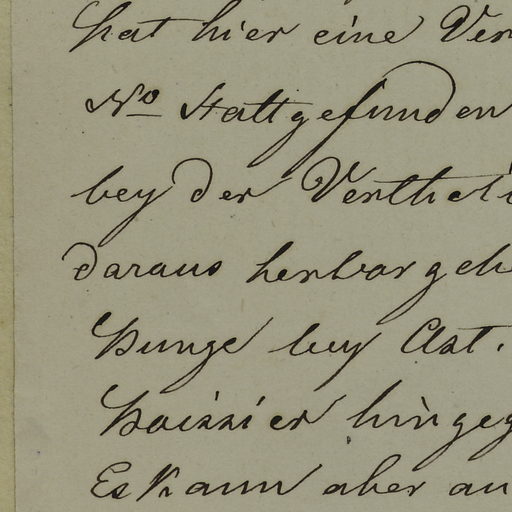 hat hier eine Ver
No stattgefunden
bey der Vertheli
daraus hervorgeh
Punze bey Art.
hingeg
Es kann aber au